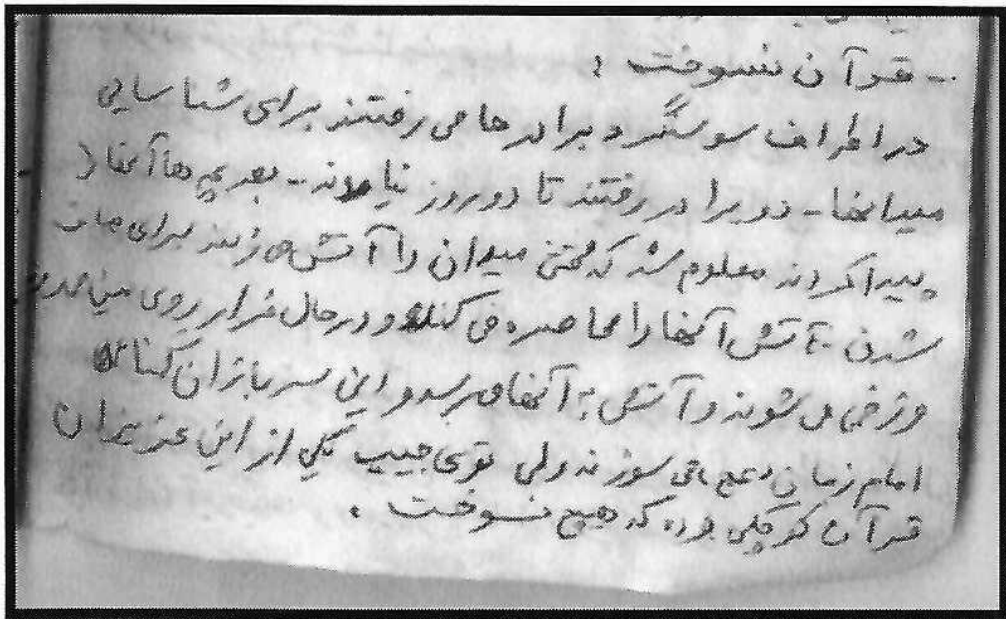 - قرآن نسوخت :
در اطراف سوسنگرد برادرها می رفتند برای شناسایی
میدانها - دو برادر رفتند تا دو روز نیامدند - بعد بچه ها آنها را
پیدا کردند معلوم شد که وقتی میدان را آتش می زنند برای صاف
شدن - آتش آنها را محاصره می کند و در حال فرار روی مین می روند
و زخمی می شوند و آتش به آنها می رسد و این سربازان
امام زمان (عج) می سوزند ولی توی جیب یکی از این عزیزان
قرآن کوچکی بوده که هیچ نسوخت .